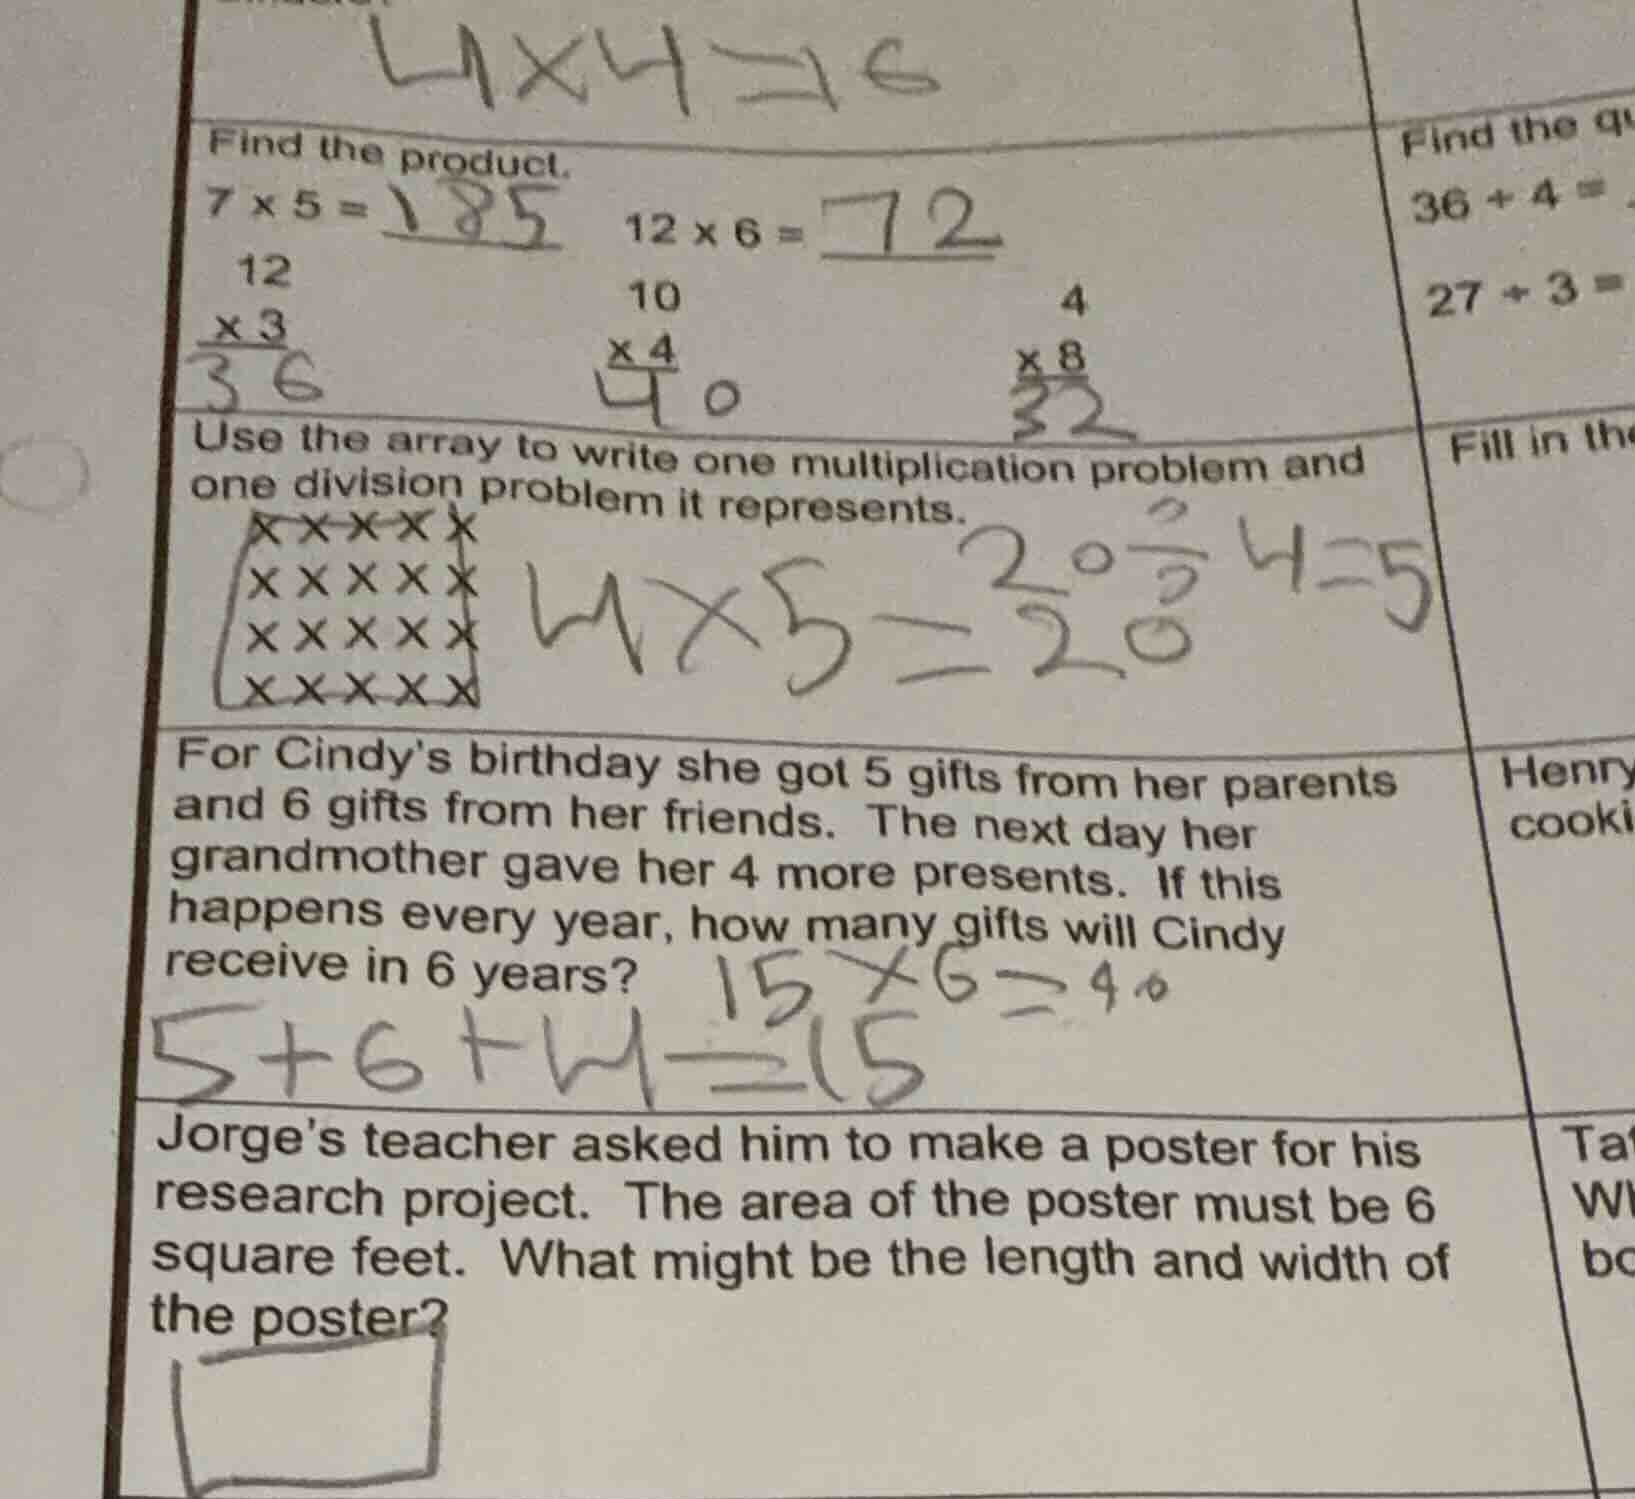 4 x 4 = 16
Find the product.
7 x 5 = 185 12 x 6 = 72
12
x 3
36
10
x 4
40
4
x 8
32
Use the array to write one multiplication problem and
one division problem it represents.
x x x x x
x x x x x
x x x x x
x x x x x
20 ÷ 4 = 5
4 x 5 = 20
For Cindy's birthday she got 5 gifts from her parents
and 6 gifts from her friends. The next day her
grandmother gave her 4 more presents. If this
happens every year, how many gifts will Cindy
receive in 6 years? 15 x 6 = 90
5 + 6 + 4 = 15
Jorge's teacher asked him to make a poster for his
research project. The area of the poster must be 6
square feet. What might be the length and width of
the poster?
Find the
36 ÷ 4 =
27 ÷ 3 =
Fill in
Henry